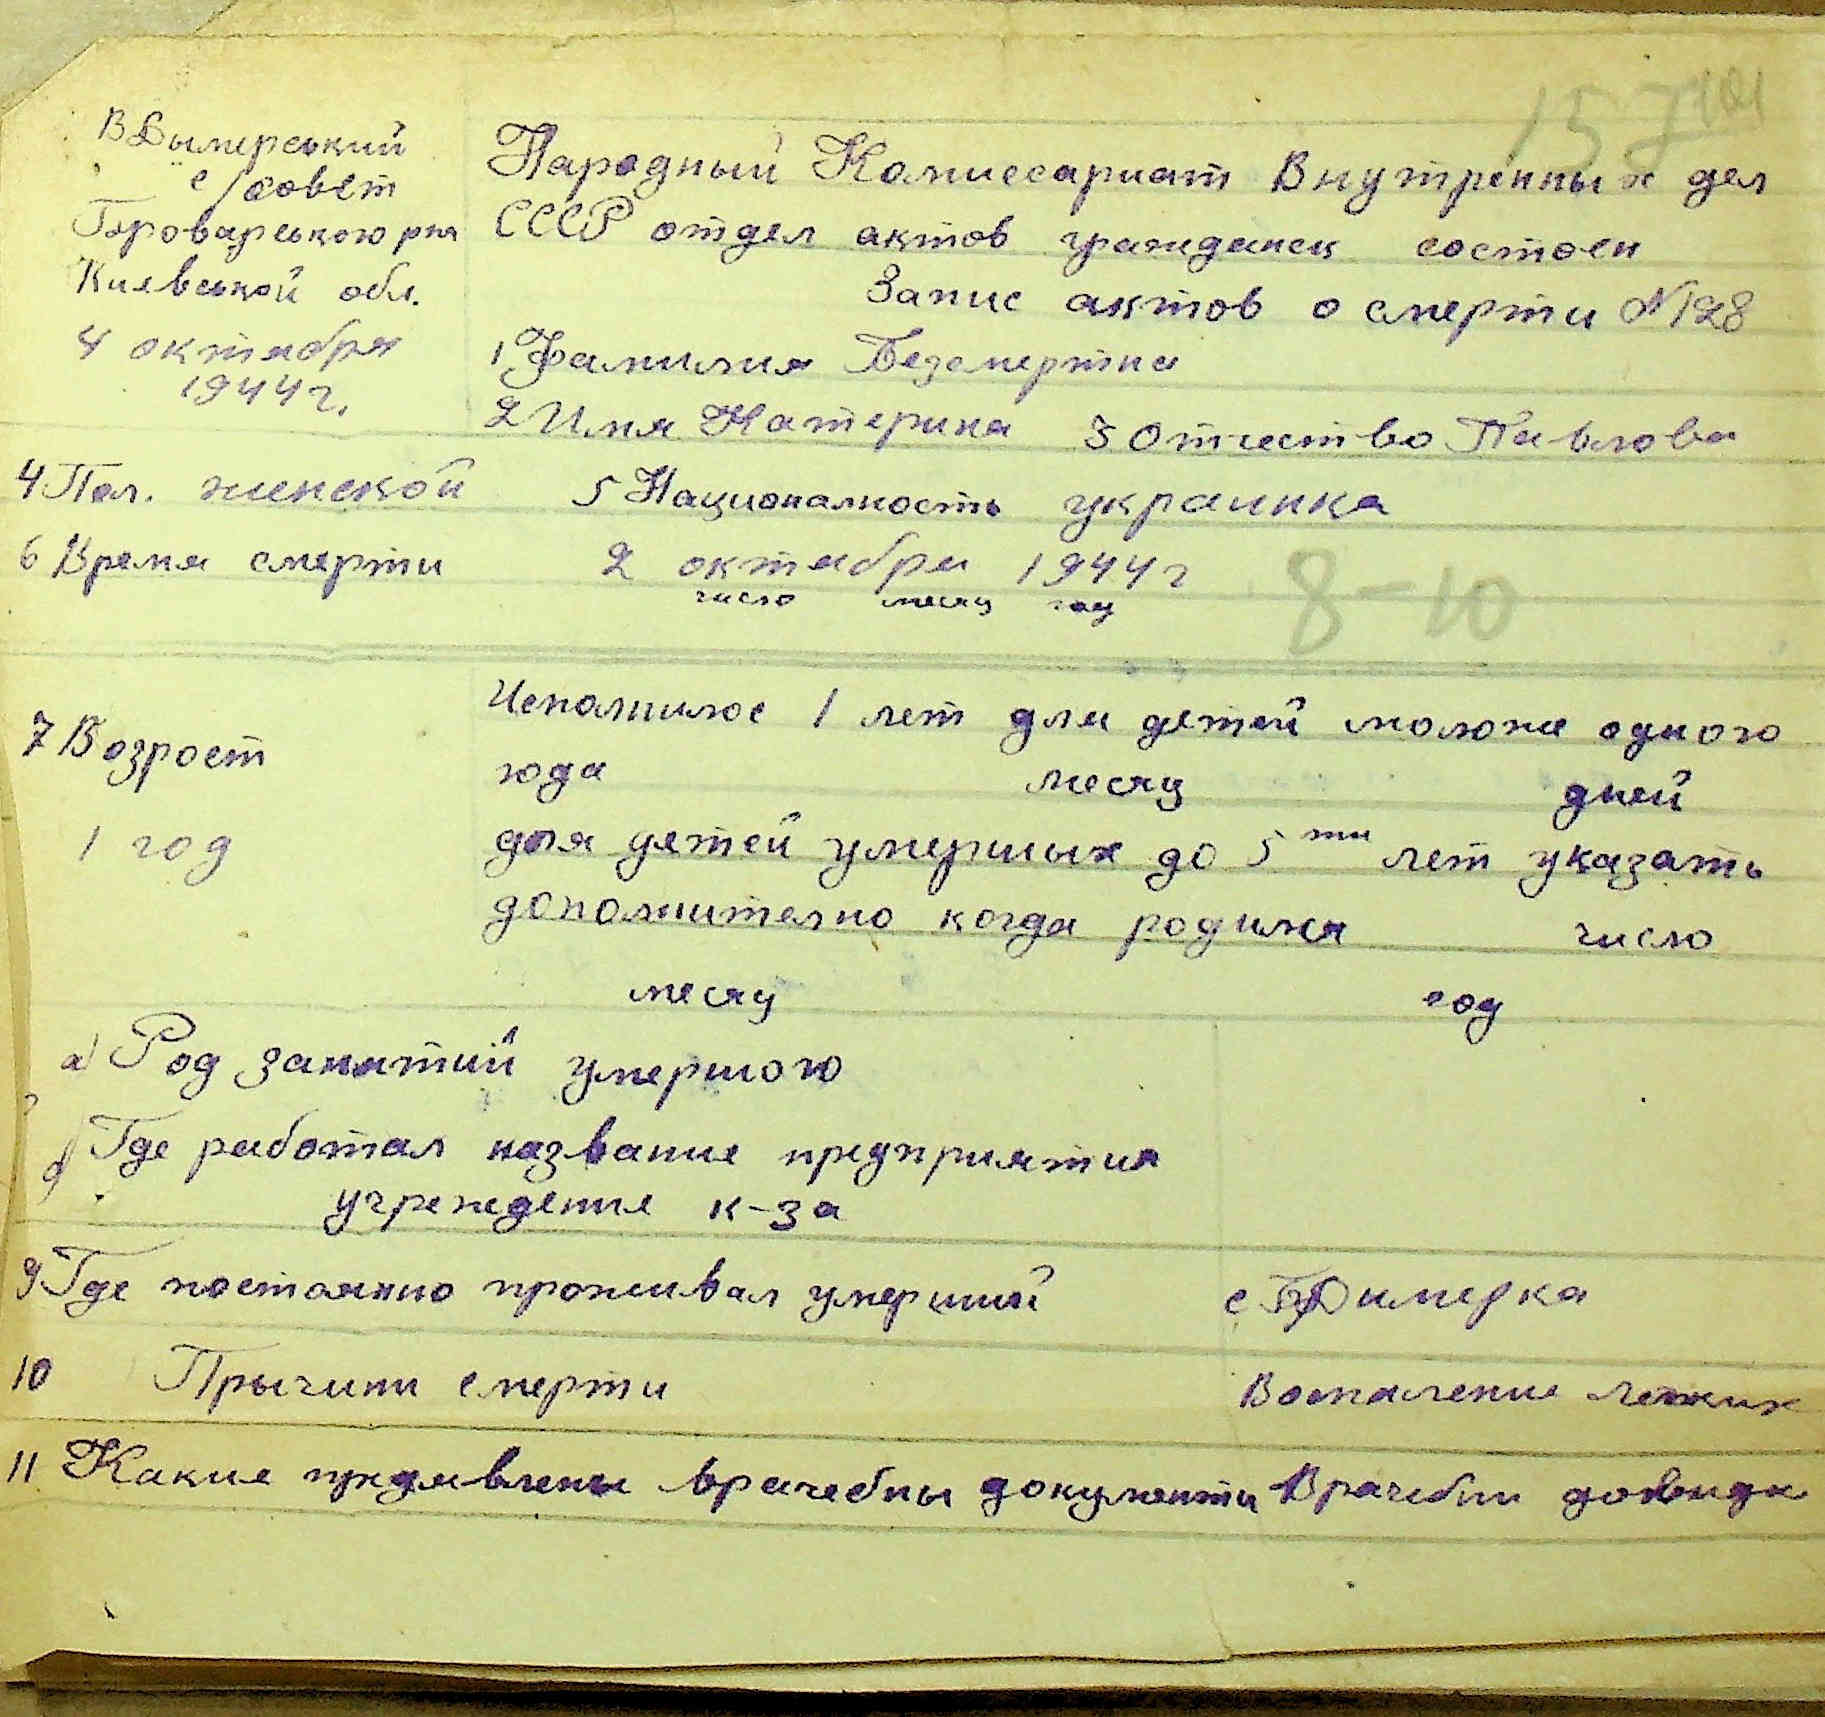 157
В Дымерський
с/совет
Броварського рна
Киевськой обл.
4 октября
1944 г.
Народный Комиссариат Внутренных дел
СССР отдел актов гражданск состоен
Запис актов о смерти N128
1 Фамилия Безсмертна
2 Имя Катерина 3 Отчество Павлова
4 Пол. женской 5 Националность украинка
6 Время смерти 2 октября 1944 г
число месяц год
8-10
7 Возрост
1 год
Исполнилос 1 лет для детей моложе одного
года месяц дней
для детей умерших до 5 ти лет указать
дополнително когда родился число
месяц год
а) Род занятий умершого
Где работал название предприятия
учреждение к-за
9 Где постоянно проживал умерший с Димерка
10 Прычини смерти Воспаление легких
11 Какие предявлены врачебны документи Врачебни довидк